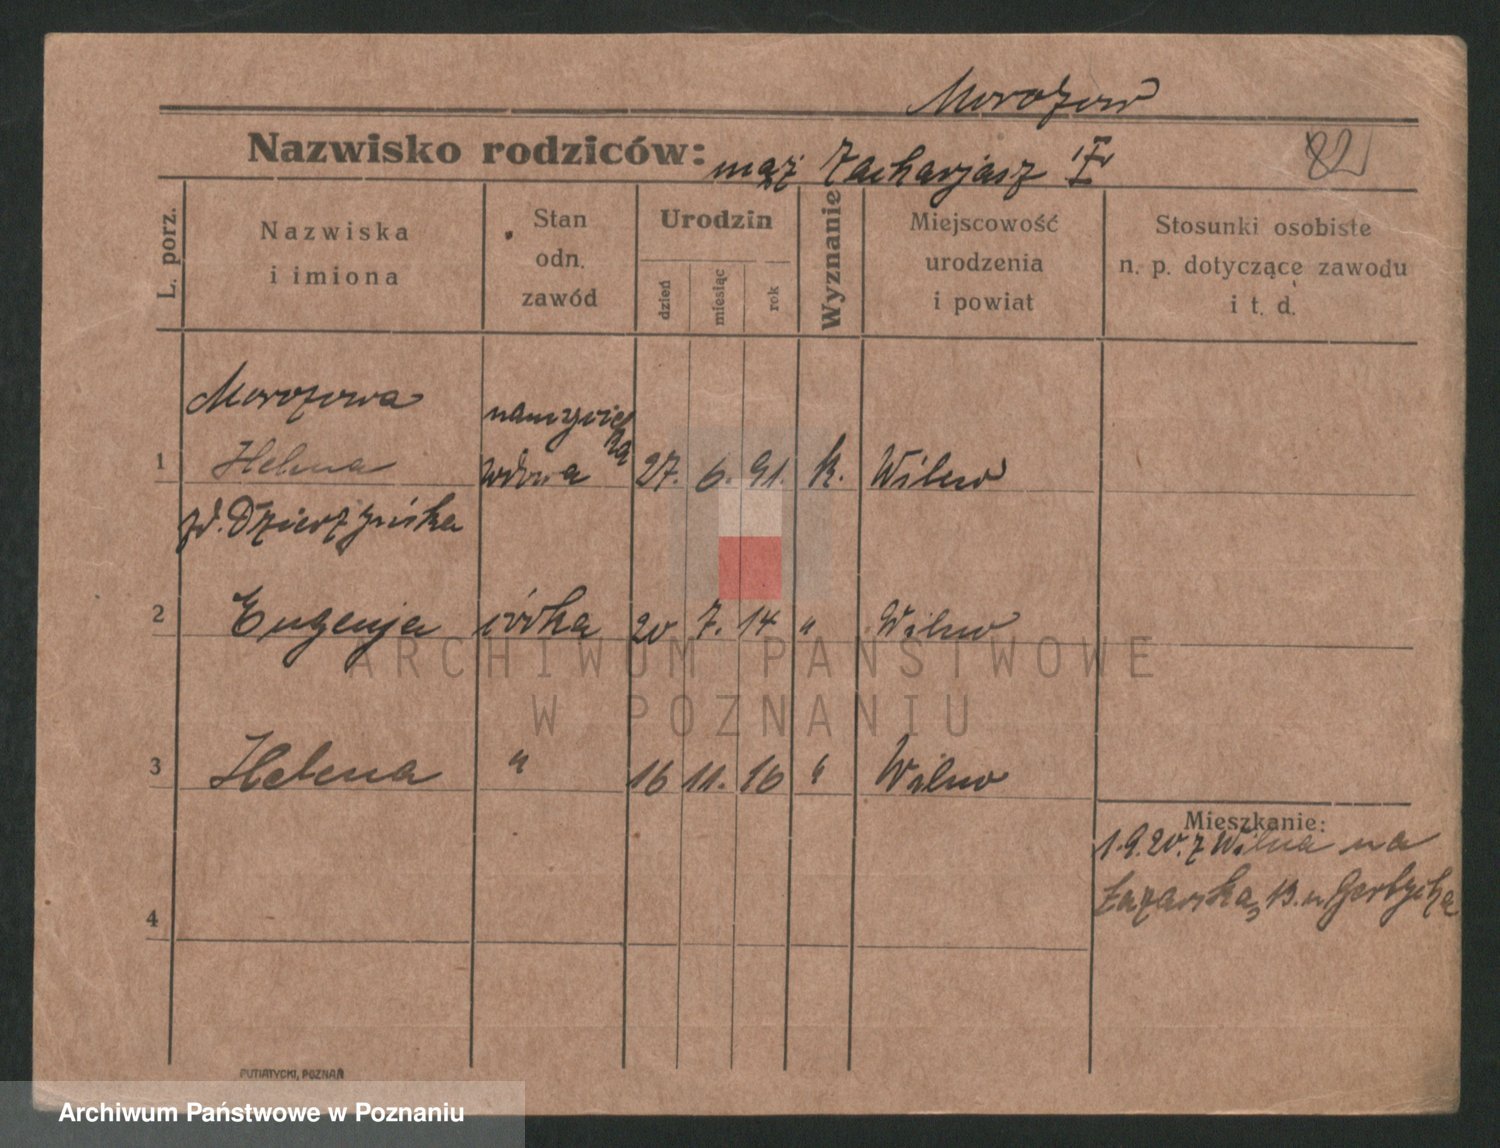 Morozow
Nazwisko rodziców: mąż Zacharjasz
82
L. porz.
Nazwiska
i imiona
Stan
odn.
zawód
Urodzin
dzień
miesiąc
rok
Wyznanie
Miejscowość
urodzenia
i powiat
Stosunki osobiste
n. p. dotyczące zawodu
i t. d.
Morozowa nauczycielka
1 Helena wdowa 27. 6. 91. k. Wilno
zd. Dzierżyńska
2 Eugenja córka 20 7. 14 " Wilno
3 Helena " 16 11. 16 " Wilno
Mieszkanie:
1.9.20. z Wilna na
4 Łazarska, 13. u Garbycka
ARCHIWUM PAŃSTWOWE
W POZNANIU
PUTIATYCKI, POZNAŃ
Archiwum Państwowe w Poznaniu